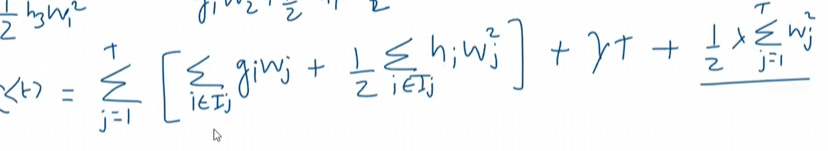 ½ h₃w₁²
L⟨t⟩ = ∑_{j=1}^{T} [ ∑_{i∈Ij} gᵢwⱼ + ½ ∑_{i∈Ij} hᵢwⱼ² ] + γT + ½ λ ∑_{j=1}^{T} wⱼ²